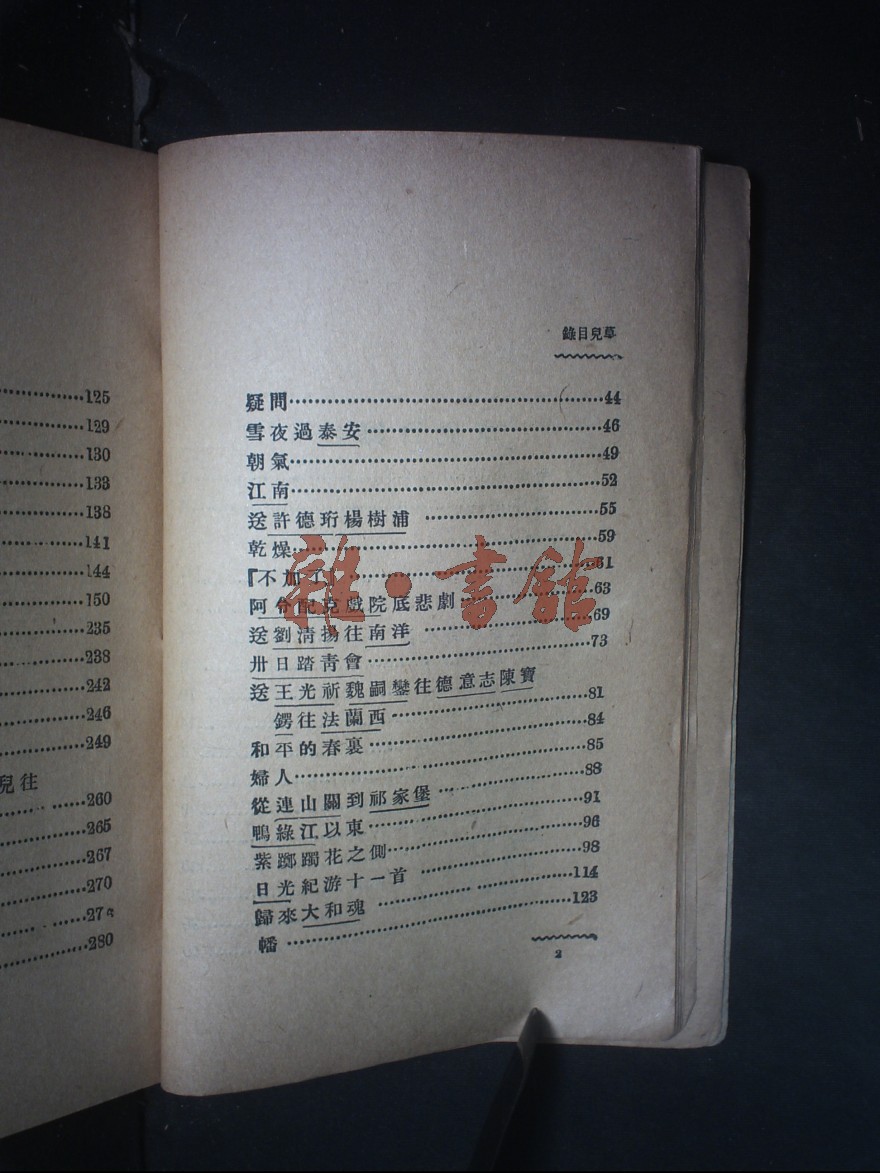 125
129
130
133
138
141
144
150
235
238
242
246
249
兒往
260
265
267
270
27
280
錄目兒草
疑問……44
雪夜過泰安……46
朝氣……49
江南……52
送許德珩楊樹浦……55
乾燥……59
『不加了』……61
阿令配克戲院底悲劇……63
送劉清揚往南洋……69
卅日踏青會……73
送王光祈魏嗣鑾往德意志陳寶
鍔往法蘭西……81
和平的春裏……84
婦人……85
從連山關到祁家堡……88
鴨綠江以東……91
紫躑躅花之側……96
日光紀游十一首……98
歸來大和魂……114
幡……123
2
雜·書館